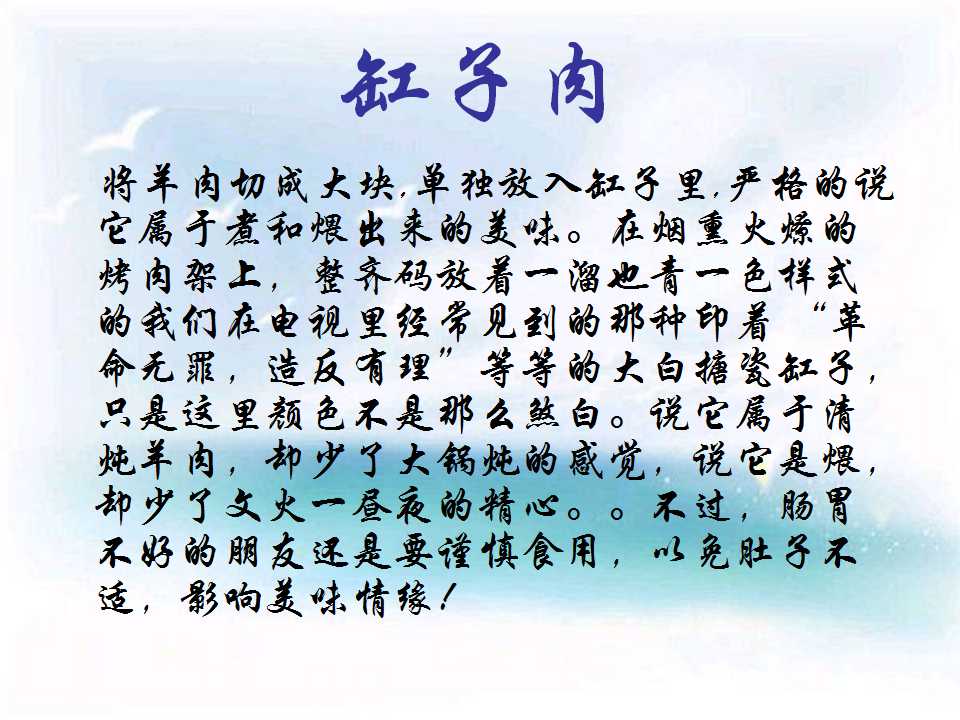 缸子肉
将羊肉切成大块,单独放入缸子里,严格的说
它属于煮和煨出来的美味。在烟熏火燎的
烤肉架上，整齐码放着一溜也青一色样式
的我们在电视里经常见到的那种印着“革
命无罪，造反有理”等等的大白搪瓷缸子，
只是这里颜色不是那么煞白。说它属于清
炖羊肉，却少了大锅炖的感觉，说它是煨，
却少了文火一昼夜的精心。。不过，肠胃
不好的朋友还是要谨慎食用，以免肚子不
适，影响美味情缘！